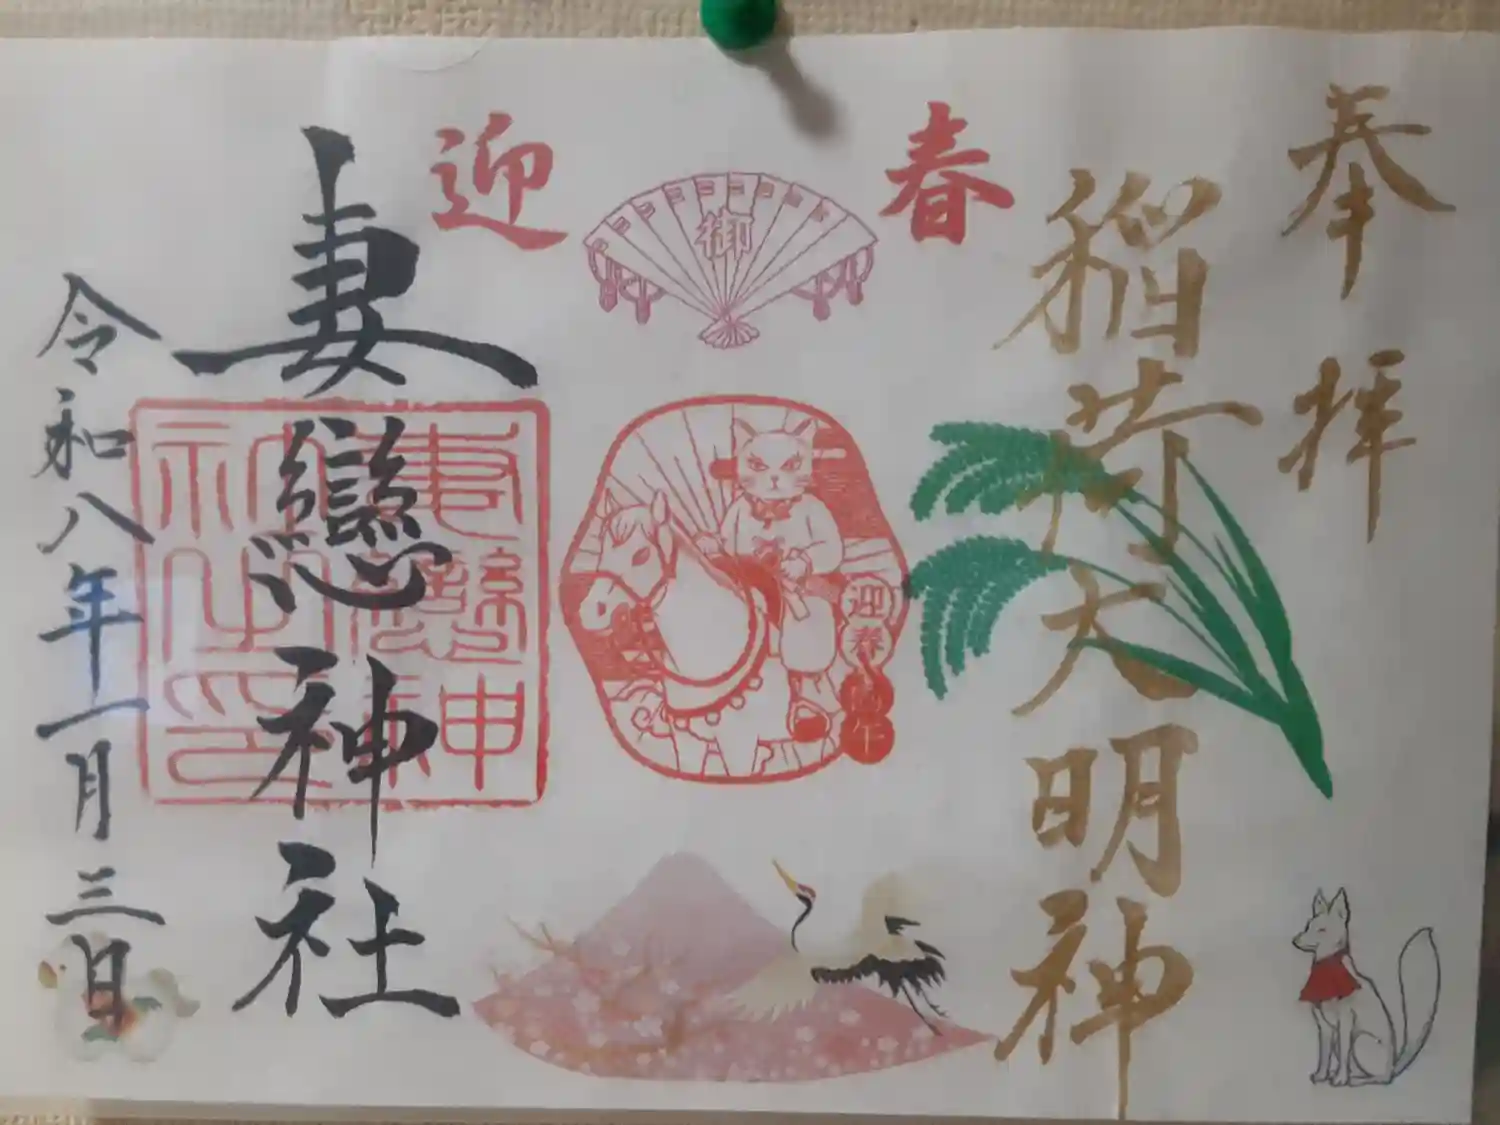 奉拝
稲荷大明神
春
御
迎
迎春
妻戀神社
妻戀神
社之印
令和八年一月三日